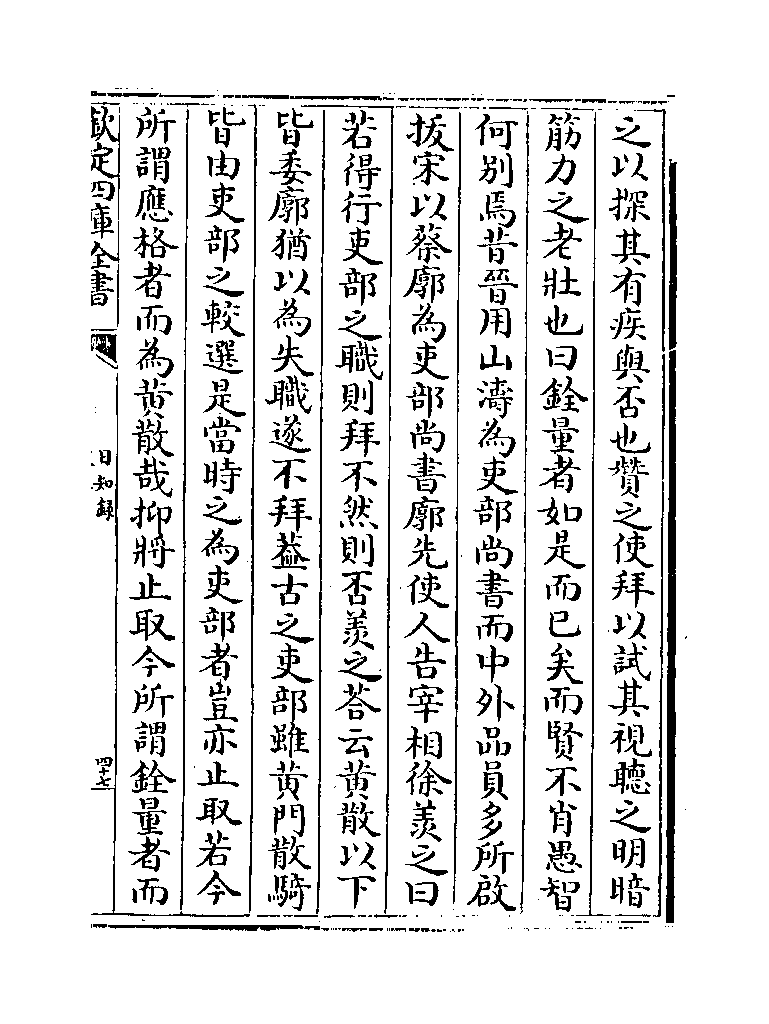 之以探其有疾與否也贊之使拜以試其視聽之明暗
筋力之老壯也曰銓量者如是而已矣而賢不肖愚智
何別焉昔晉用山濤為吏部尚書而中外品員多所啟
拔宋以蔡廓為吏部尚書廓先使人告宰相徐羨之曰
若得行吏部之職則拜不然則否羨之荅云黄散以下
皆委廓猶以為失職遂不拜葢古之吏部雖黄門散騎
皆由吏部之較選是當時之為吏部者豈亦止取若今
所謂應格者而為黄散哉抑將止取今所謂銓量者而
欽定四庫全書
日知録
四十七